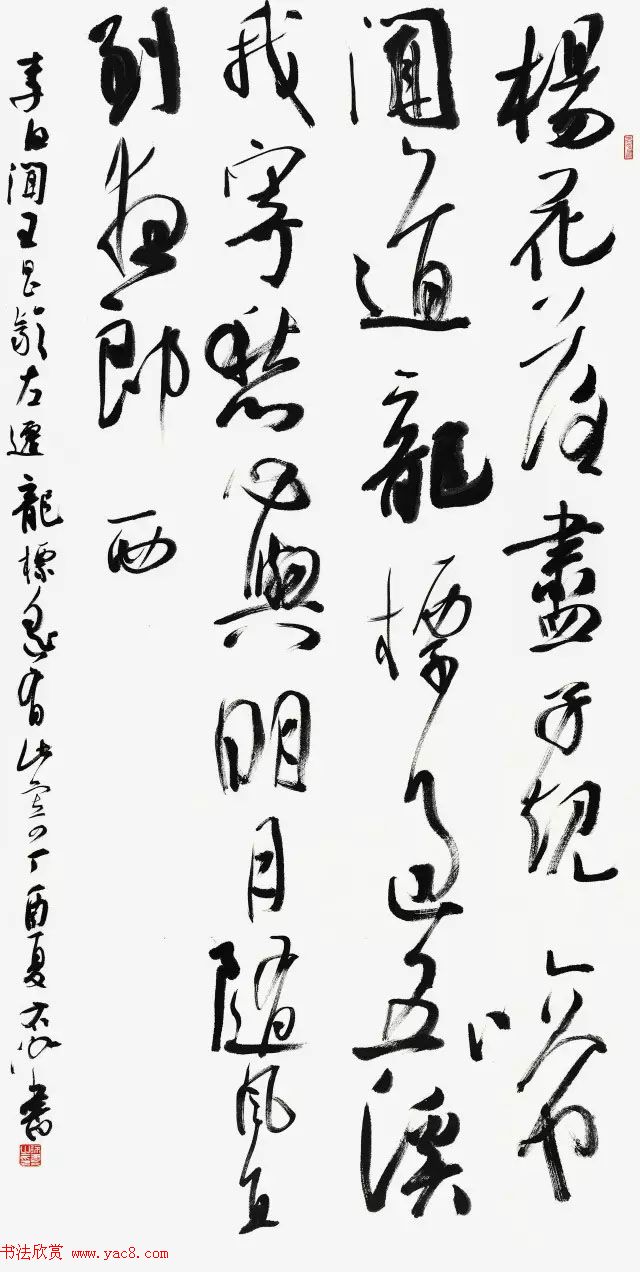 楊花落盡子規啼
聞道龍標過五溪
我寄愁心與明月隨風直
到夜郎西
李白聞王昌齡左遷龍標遙有此寄 丁酉夏 書
书法欣赏 www.yac8.com